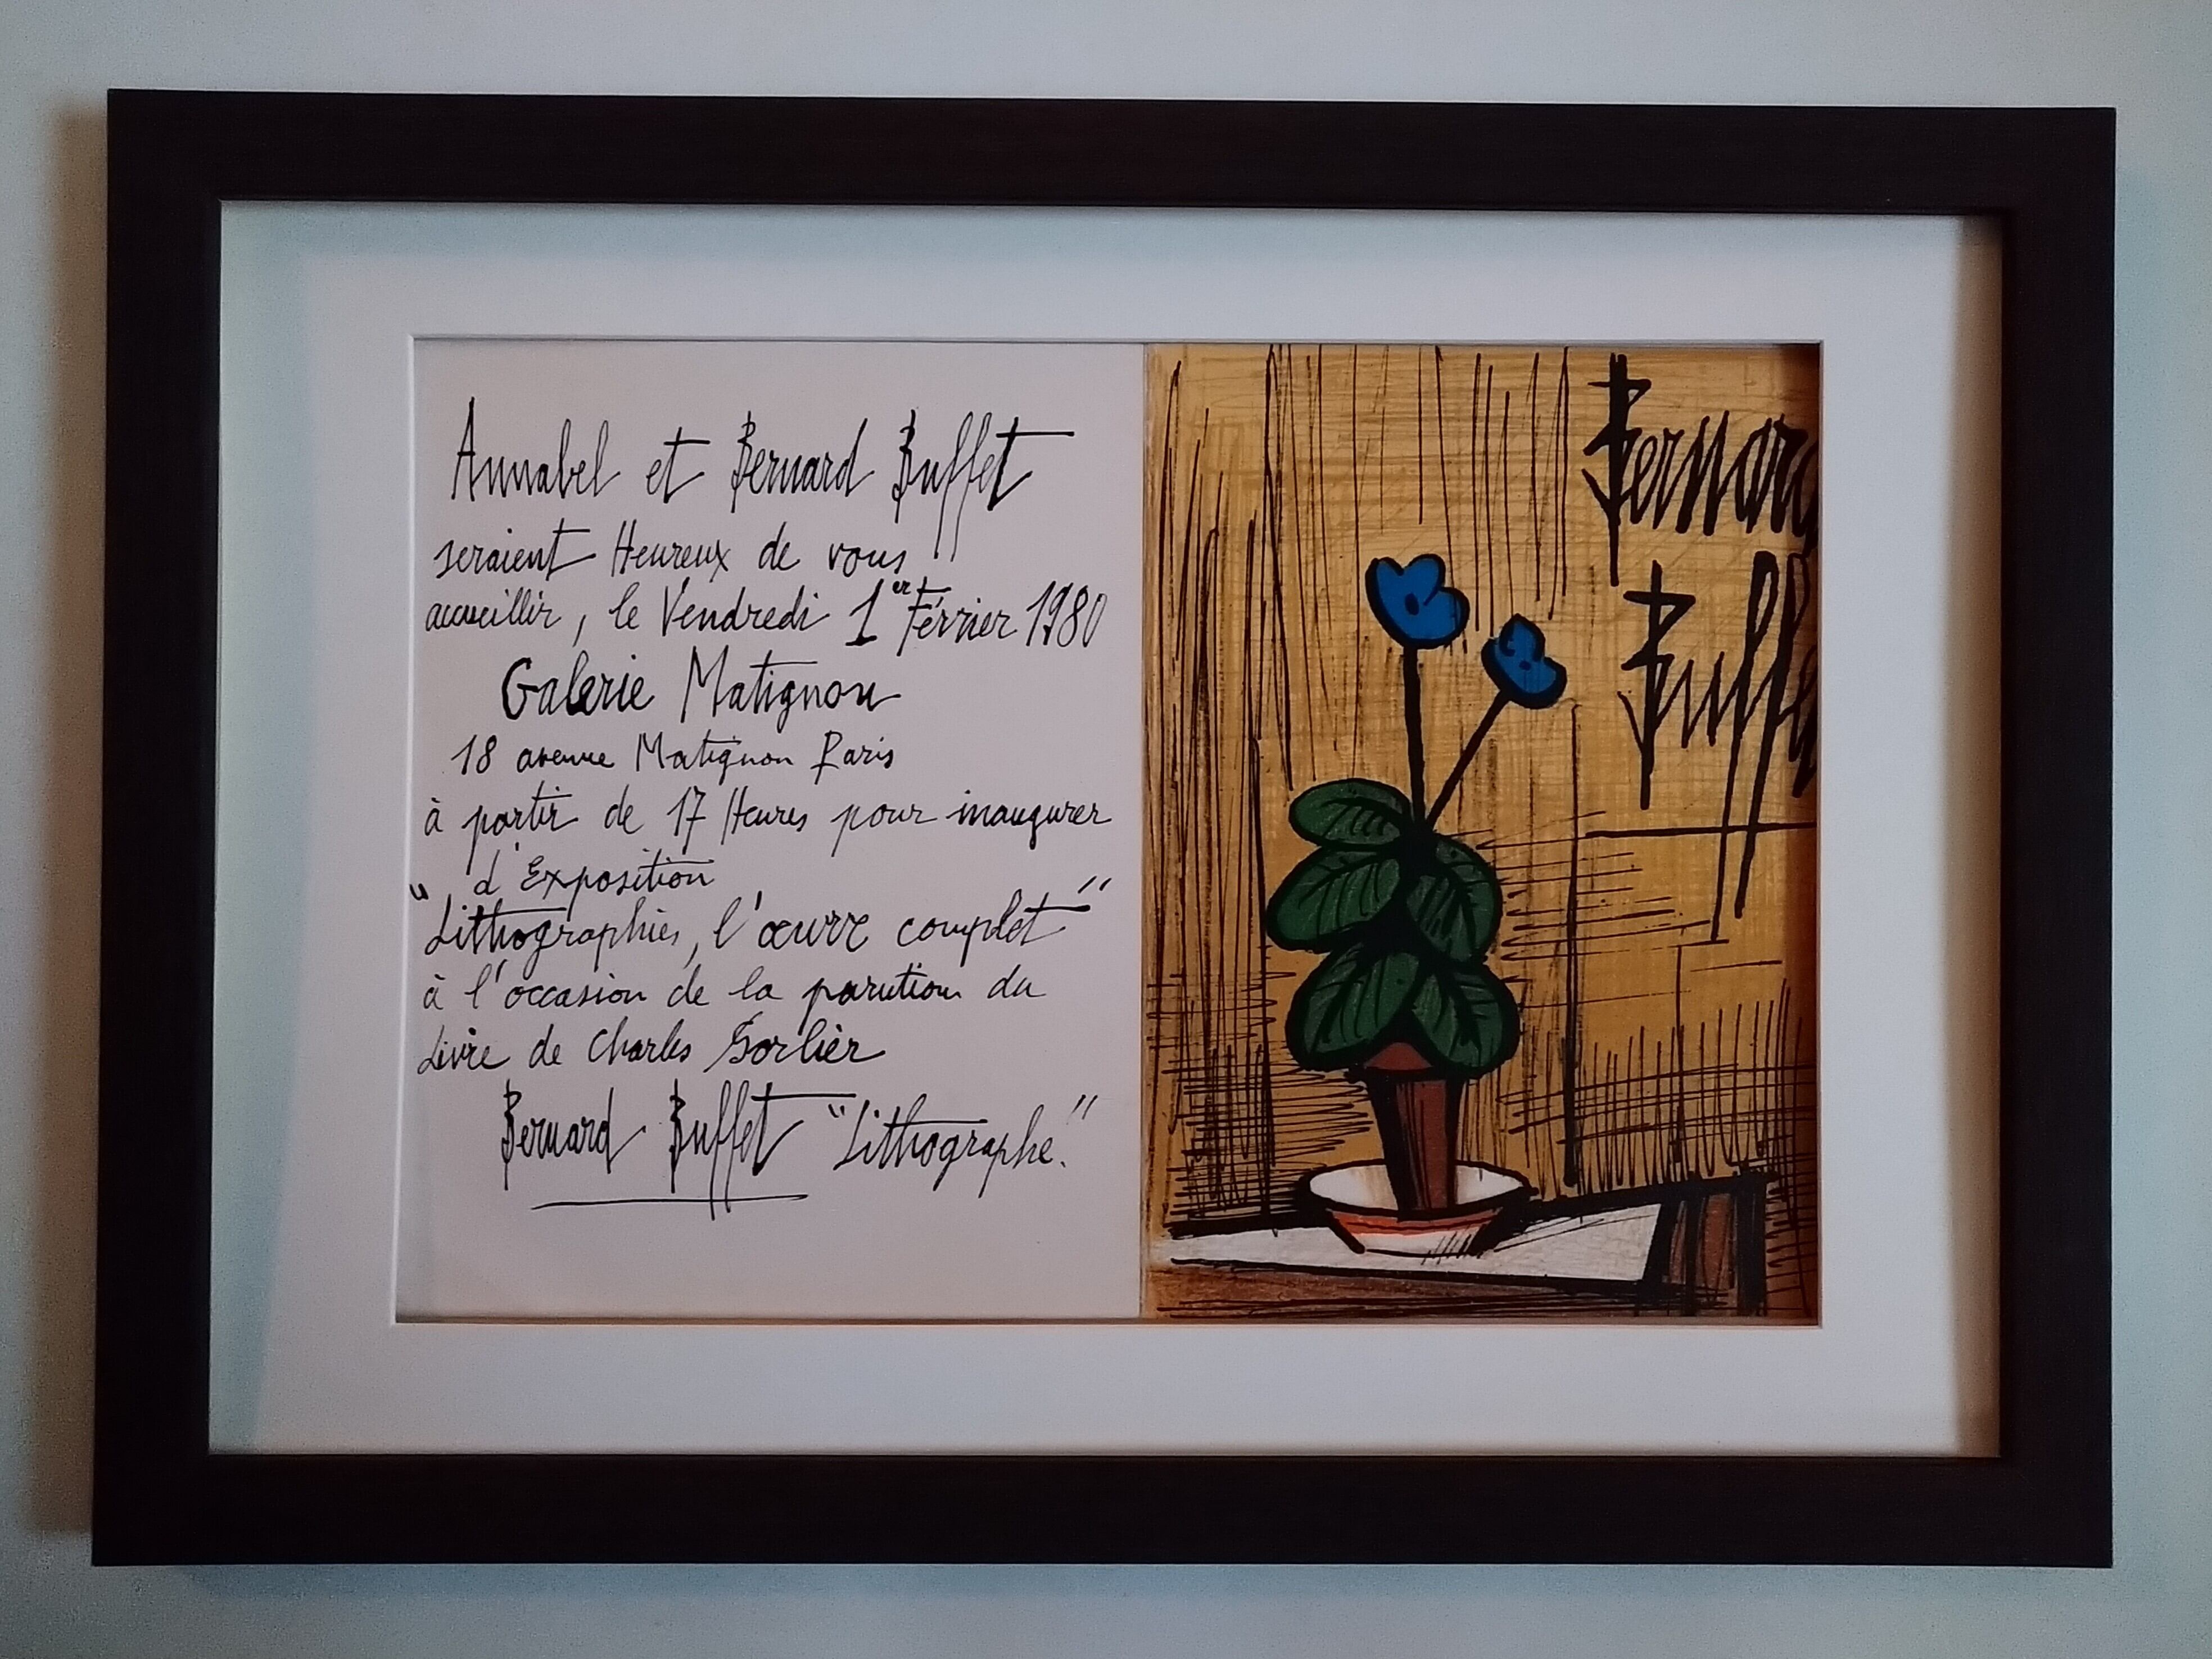 Annabel et Bernard Buffet
seraient Heureux de vous
accueillir, le Vendredi 1er Février 1980
Galerie Matignon
18 avenue Matignon Paris
à partir de 17 Heures pour inaugurer
d'Exposition
"Lithographies, l'œuvre complet"
à l'occasion de la parution du
Livre de Charles Sorlier
Bernard Buffet "Lithographe."
Bernard
Buffe